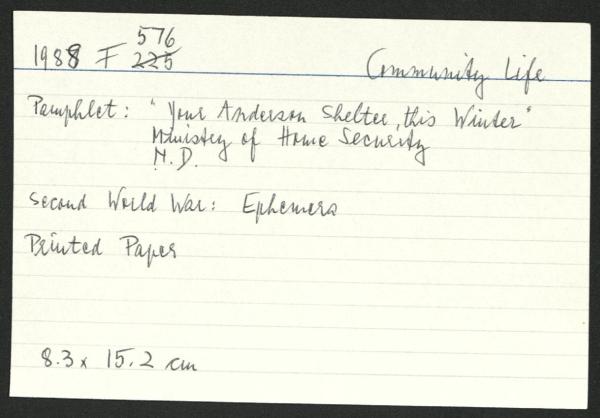 576
1988 F 225
Community Life
Pamphlet: "Your Anderson Shelter, this Winter"
Ministry of Home Security
N.D.
Second World War: Ephemera
Printed Paper
8.3 x 15.2 cm